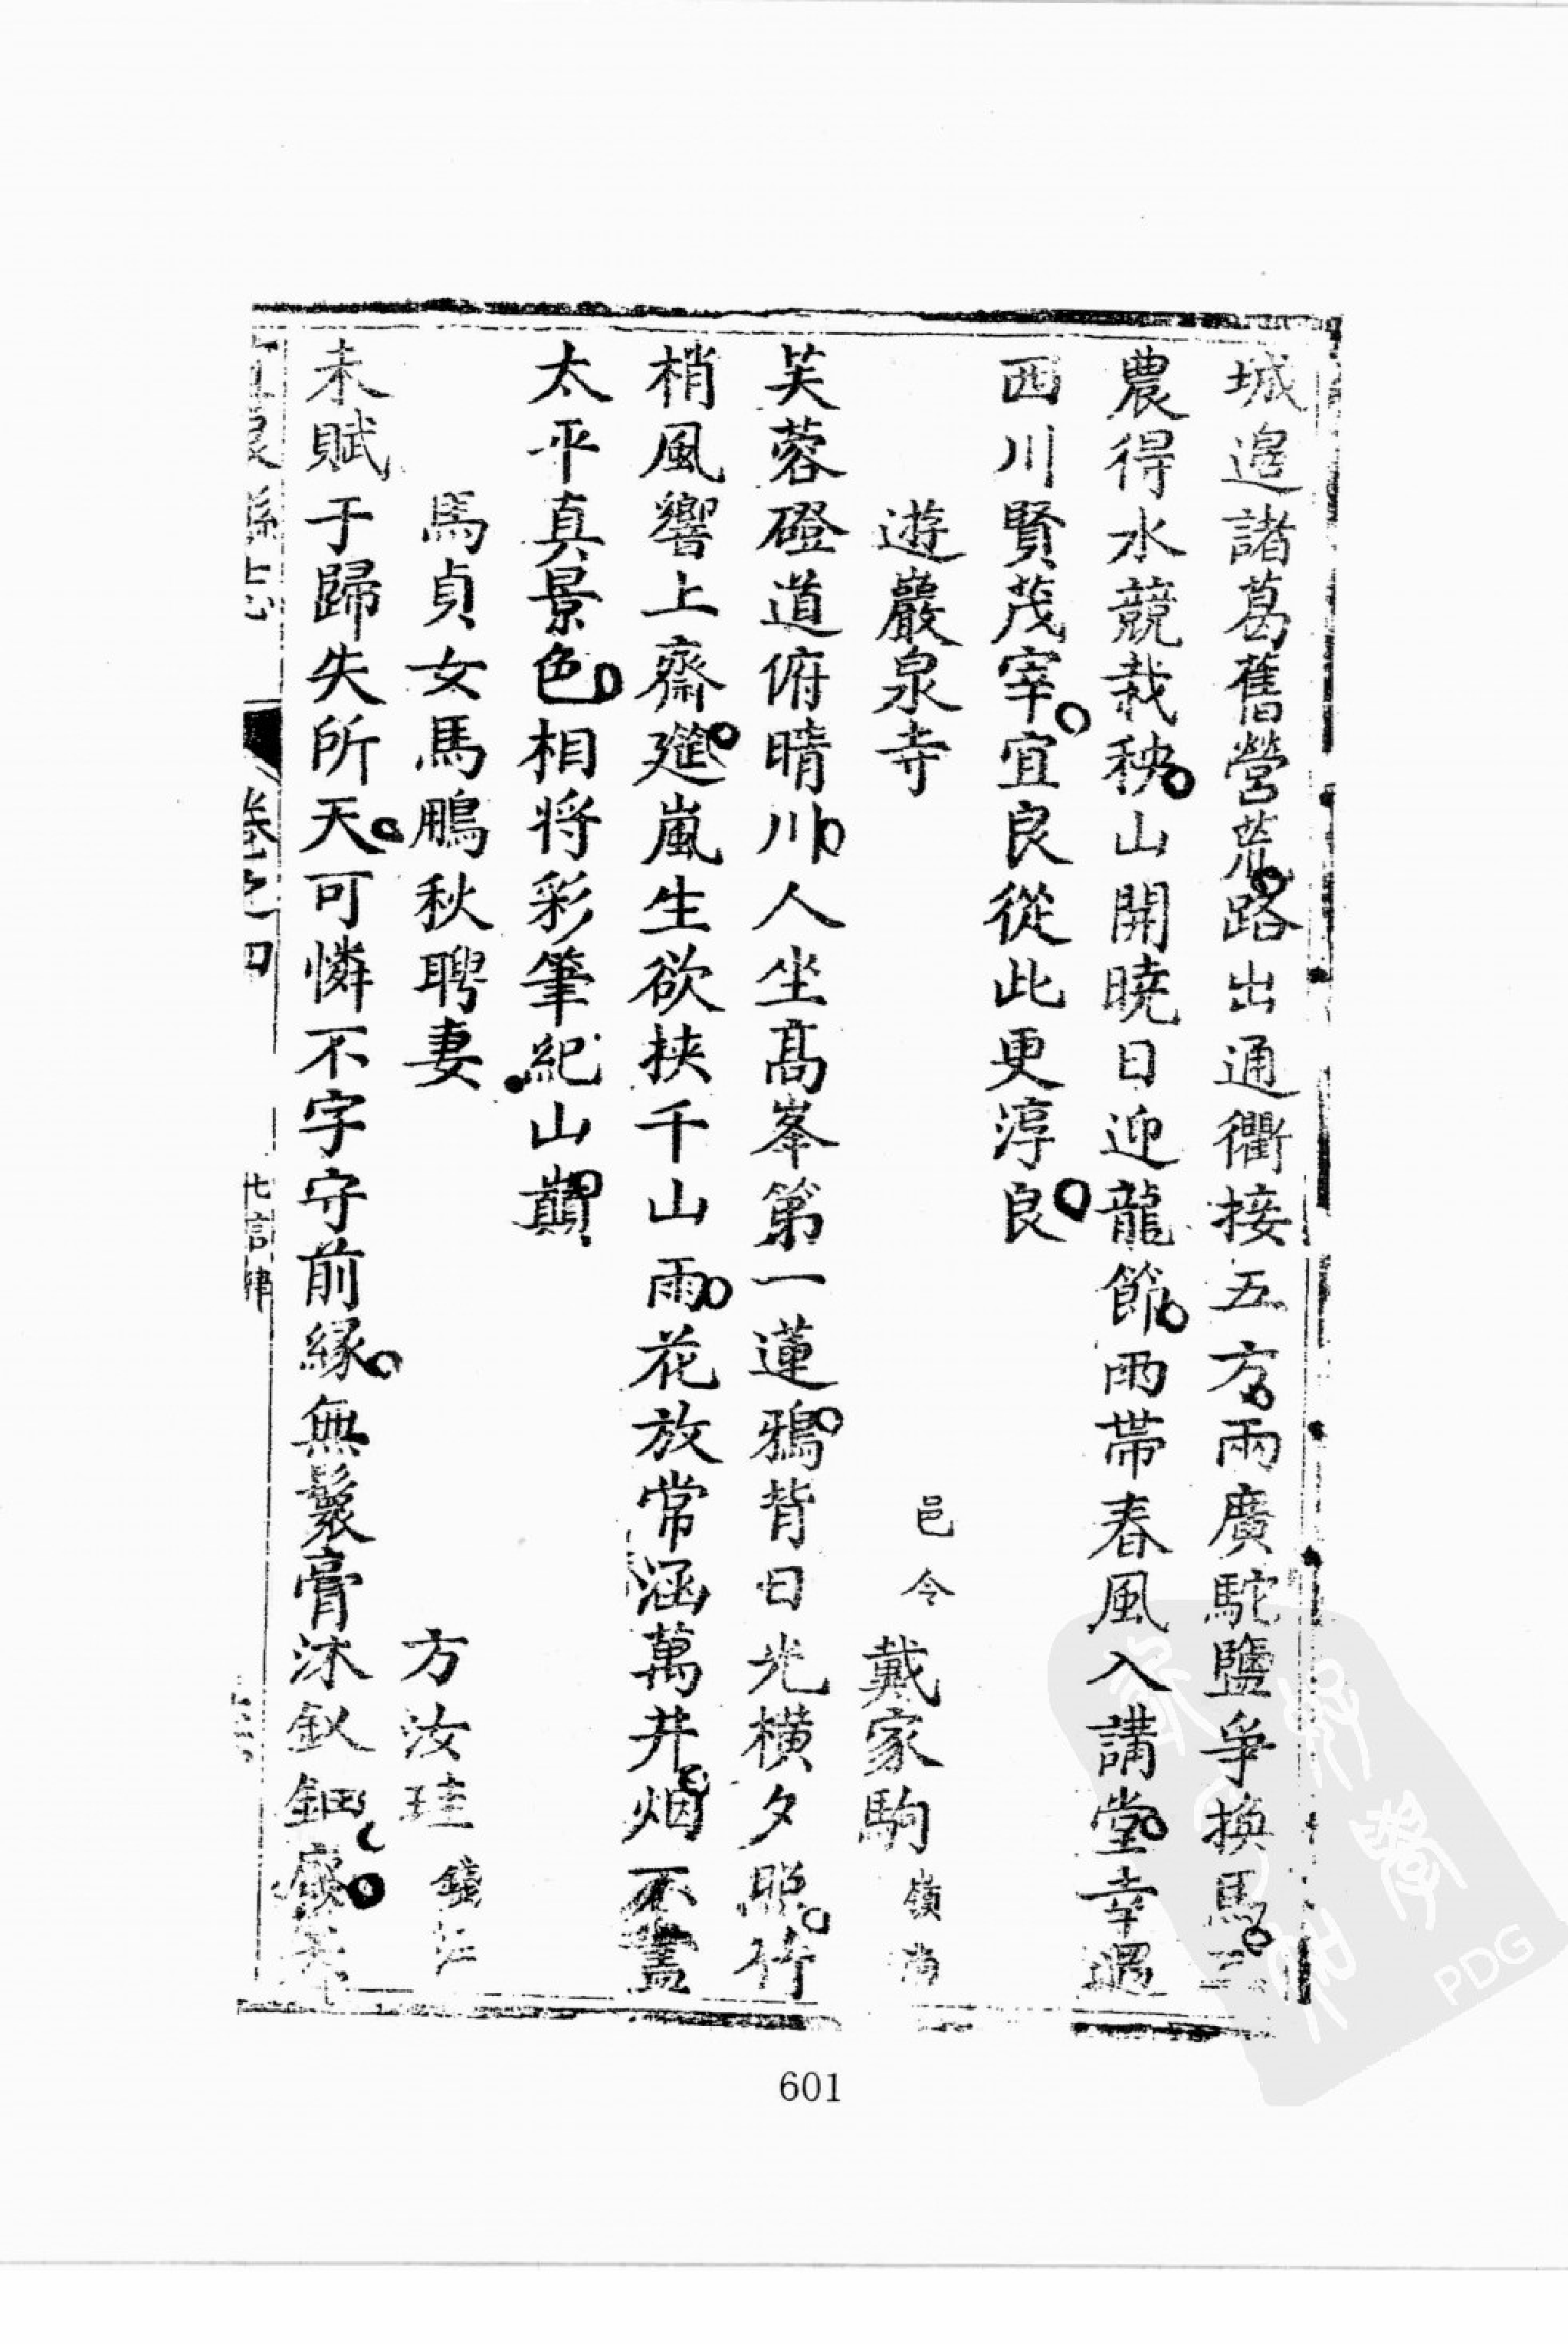 城邉諸葛舊營荒路出通衢接五方兩廣駝鹽爭換馬三
農得水競栽秧山開曉日迎龍節雨帶春風入講堂幸遇
西川賢茂宰宜良從此更淳良
遊巖泉寺
邑令 戴家駒 嶺南
芙蓉磴道俯晴川人坐髙峯第一蓮鴉背日光橫夕照竹
梢風響上齋筵嵐生欲挾千山雨花放常涵萬井烟不盡
太平真景色相將彩筆紀山巔
馬貞女馬鵬秋聘妻
方汝珪
未賦于歸失所天可憐不字守前緣無鬟膏沐釵鈿廢
縣志
卷之四
七言律
601
PDG